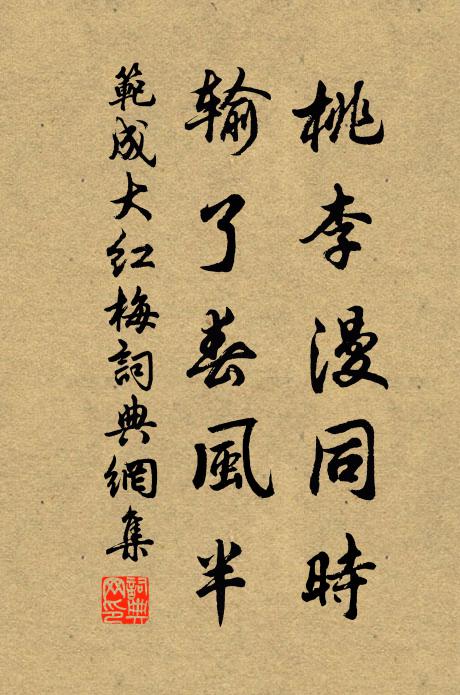 桃李漫同時
輸了春風半
範成大红梅詞典網集
詞典网印